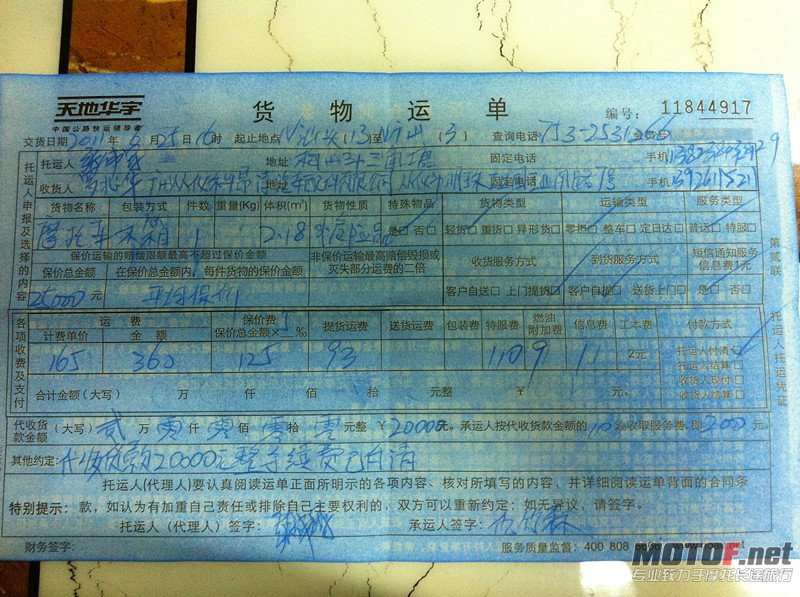 天地华宇
中国公路快运领导者
货物运单
编号: 11844917
交货日期 2011年 25日16时 起止地点 (3)至 (3) 查询电话 753-25312
托运人 地址 固定电话 手机
收货人 地址 固定电话 手机
货物名称 包装方式 件数 重量(Kg) 体积(m³) 货物性质 特殊物品 货物类型 运输类型 服务类型
摩托车 木箱 1 2.18 是□ 否□ 轻货□ 重货□ 异形货□ 零担□ 整车□ 定日达□ 普达□ 特服□
托运人申报及选择的内容
保价运输的赔偿限额最高不超过保价金额 非保价运输最高赔偿毁损或灭失部分运费的二倍 收货服务方式 到货服务方式 短信通知服务信息费1元
保价总金额 在保价总金额内,每件货物的保价金额
25000元 平均保价 客户自送□ 上门提货□ 客户自提□ 送货上门□ 是□ 否□
第贰联 托运人托运凭证
各项收费及支付
运费 保价费 提货运费 送货运费 包装费 特服费 燃油附加费 信息费 工本费 付款方式
计费单价 金额 保价总金额× ‰
165 360 125 93 110 9 1 2元
托运人付清□
托运人结算□
收货人提付□
收货人结算□
合计金额(大写) 万 仟 佰 拾 元整 ¥ 元。
代收货款金额 (大写)贰万零仟零佰零拾零元整 ¥20000元。承运人按代收货款金额的10‰收取服务费,即200元。
其他约定: 代收货款20000元整手续费已付清
托运人(代理人)要认真阅读运单正面所明示的各项内容、核对所填写的内容、并详细阅读运单背面的合同条
特别提示: 款,如认为有加重自己责任或排除自己主要权利的,双方可以重新约定;如无异议,请签字。
托运人(代理人)签字: 承运人签字:
财务签字: 服务质量监督: 400 808 6666
MOTOF.net
专业致力于摩托长途旅行